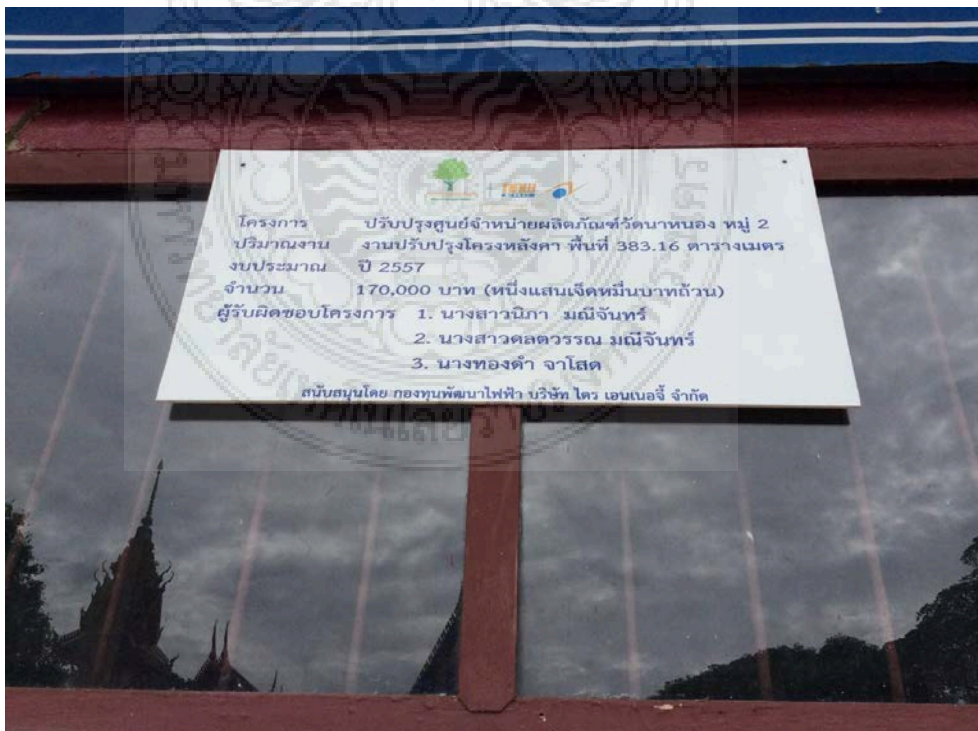 โครงการ ปรับปรุงศูนย์จำหน่ายผลิตภัณฑ์วัดนาหนอง หมู่ 2
ปริมาณงาน งานปรับปรุงโครงหลังคา พื้นที่ 383.16 ตารางเมตร
งบประมาณ ปี 2557
จำนวน 170,000 บาท (หนึ่งแสนเจ็ดหมื่นบาทถ้วน)
ผู้รับผิดชอบโครงการ 1. นางสาวนิภา มณีจันทร์
2. นางสาวดลตวรรณ มณีจันทร์
3. นางทองดำ จาโสด
สนับสนุนโดย กองทุนพัฒนาไฟฟ้า บริษัท ไตร เอนเนอจี้ จำกัด